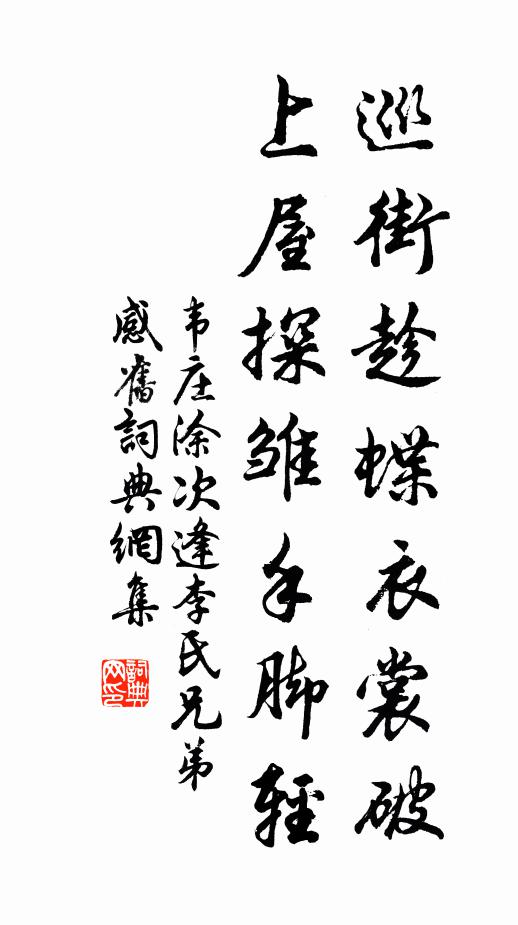 巡街趁蝶衣裳破
上屋探雏手脚輕
韦庄涂次逢李氏兄弟
感舊詞典網集
詞典
网印